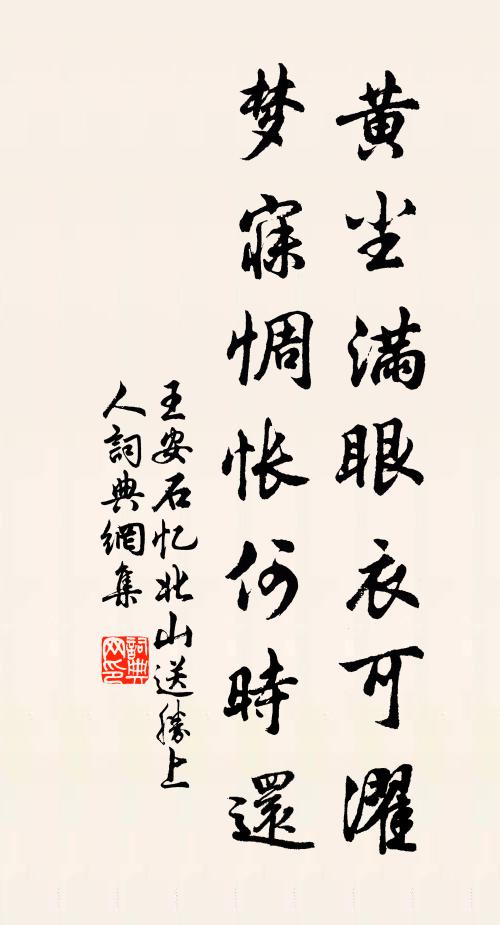 黄尘满眼衣可濯
梦寐惆怅何時還
王安石忆北山送勝上
人詞典網集
詞典
网印